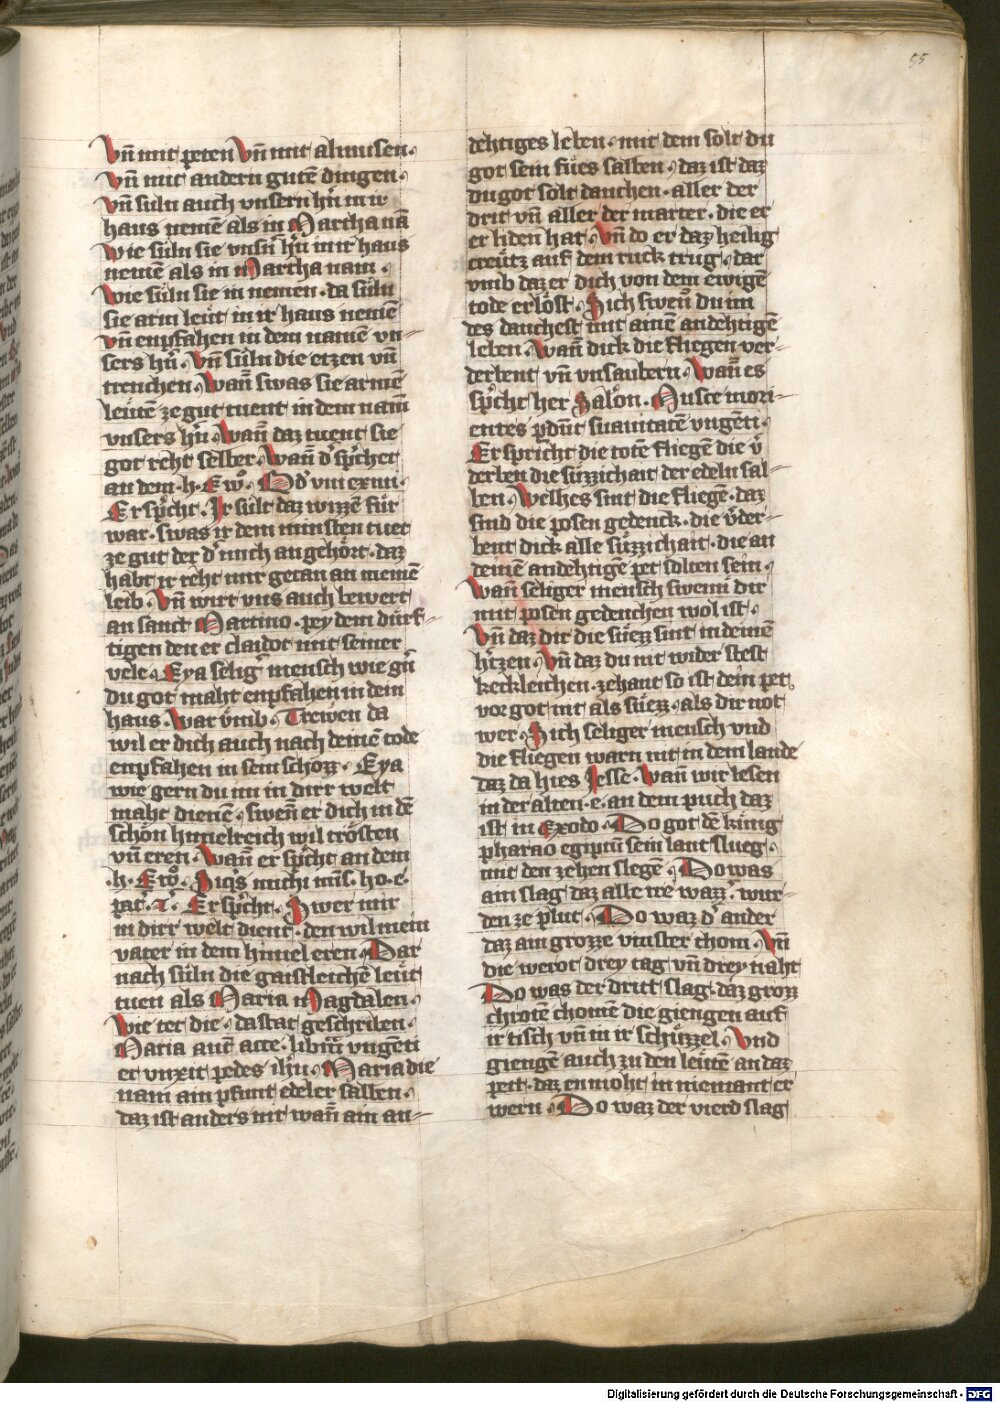 55
Vn̄ mit peten Vn̄ mit almusen·
vn̄ mit andern gutē dingen·
vn̄ suln auch vnsern hr̄n in ir
haus nemē als in Martha nā
wie suln sie vnsn̄ hr̄n in ir haus
nemē als in Martha nam·
wie suln sie in nemen· da suln
sie arm leut in ir haus nemē
vn̄ enpfahen in dem namē vn-
sers hn̄· Vn̄ suln die etzen vn̄
trenchen· Wan̄ swas sie armē
leuten ze gut tuent in dem nam̄
vnsers hn̄· wan̄ daz tuent sie
got reht selber· Wan̄ d' sp̄chet
an dem·h· Ew̄o·
Er sp̄cht· Ir sult daz wizzē für
war· swas ir dem minsten tuet
ze gut der d' mich an gehört· daz
habt ir reht mir getan an meinē
leib· Vn̄ wirt vns auch bewert
an sanct Martino· pey dem dürf-
tigen den er claidot mit seiner
velt· Eya selig' mensch wie gn̄
du got maht enpfahen in dem
haus· war v̄mb· Trewen da
wil er dich auch nach deinē tode
enpfahen in sein schozz· Eya
wie gern du im in dirr welt
maht dienē· swen̄ er dich in dē
schön himelreich wil trösten
vn̄ eren· wan̄ er sp̄cht an dem
·h· Ew̄o· Siq's michi mis̄·ho·e·
pat'· Er sp̄cht· Swer mir
in dirr welt dient· den wil mein
vater in dem himel eren· Dar
nach suln die gaistleichē leut
tuen als Maria Magdalen·
wie tet die· da stat geschriben·
Maria aut̄ acce· librā vngēti
et vnxit pedes ih̄u· Maria die
nam ain pfunt edeler salben·
daz ist anders nit wan̄ ain an-
dehtiges leben· mit dem solt du
got sein füez salben· daz ist daz
du got solt danchen· aller der
drit vn̄ aller der marter· die er
er liden hat· Vn̄ do er daz heilig
creütz auf dem ruck trug· dar
vmb daz er dich von dem ewigē
tode erlöst· Sich swen̄ du im
des danchest mit ainē andehtigē
leben· Wan̄ dick die fliegen ver-
derbent vn̄ vnsaubern· Wan̄ es
sp̄cht her Salōn· Musce mori-
entes p̄dūt suauitatē vngēti·
Er spricht die totē fliegē die v̄
derben die süzzichait der edeln sal-
ben· Welhes sint die fliegē· daz
sind die posen gedenck· die v̄der-
bent dick alle süzzichait· die an
deinē andehtigē pet solten sein·
wan̄ seliger mensch swenn dir
mit posen gedenchen wol ist·
vn̄ daz dir die süezz sint in deinē
h'tzen· Vn̄ daz du nit wider stest
keckleichen· zehant so ist dein pet
vor got nit als süezz· als dir not
wer· Sich seliger mensch vnd
die fliegen warn nit in dem lande
daz da hies Jesse· Wan̄ wir lesen
in der alten·e·an dem puch daz
ist in Exodo· Do got dē künig
pharao egiptū sein lant slueg·
mit den zehen slegē· Do was
ain slag daz alle ire wazz' wur-
den ze plut· Do waz d' ander
daz ain grozze vinster chom· Vn̄
die werot drey tag vn̄ drey naht
Do was der dritt slag· daz grozz
chrotē chomē die giengen auf
ir tisch vn̄ in ir schüzzel· Vnd
giengē auch zu den leutē an daz
pett· daz en moht in niemant er
wern· Do waz der vierd slag
Digitalisierung gefördert durch die Deutsche Forschungsgemeinschaft - DFG